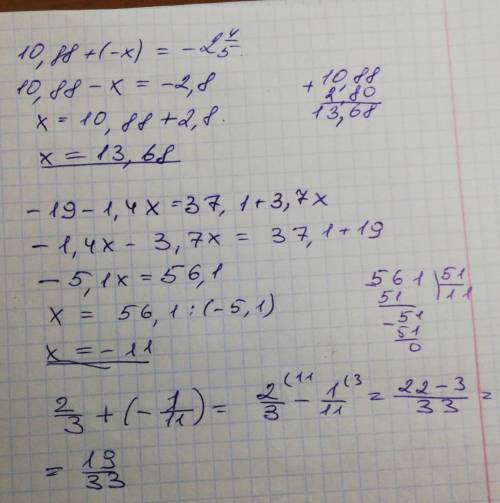 10,88 + (-x) = -2 4/5
10,88 - x = -2,8
x = 10,88 + 2,8
x = 13,68
+ 10,88
2,80
13,68
-19 - 1,4x = 37,1 + 3,7x
-1,4x - 3,7x = 37,1 + 19
-5,1x = 56,1
x = 56,1 : (-5,1)
x = -11
561 | 51
51 | 11
- 51
51
0
2/3 + (-1/11) = 2/3 (11 - 1/11 (3 = 22-3/33 =
= 19/33